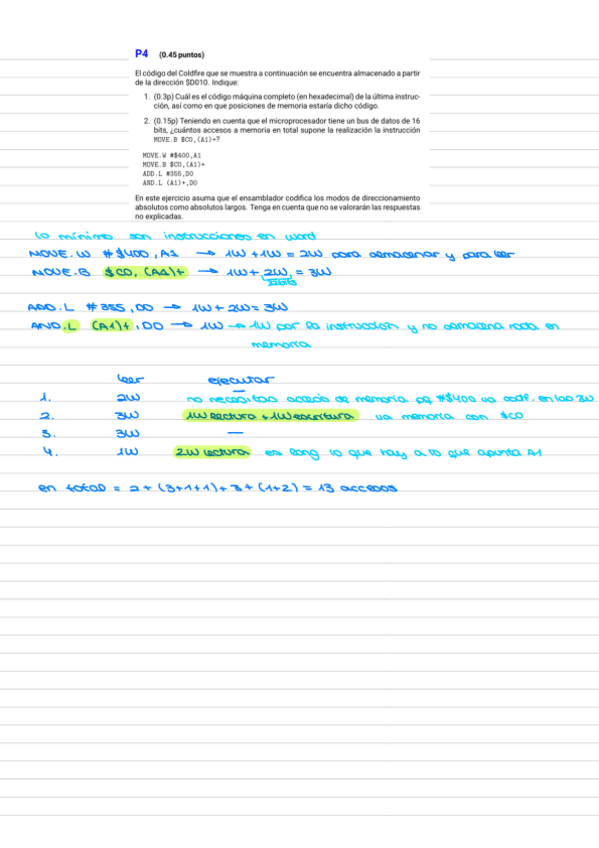 P4 (0.45 puntos)
El código del Coldfire que se muestra a continuación se encuentra almacenado a partir
de la dirección $D010. Indique:
1. (0.3p) Cuál es el código máquina completo (en hexadecimal) de la última instruc-
ción, así como en que posiciones de memoria estaría dicho código.
2. (0.15p) Teniendo en cuenta que el microprocesador tiene un bus de datos de 16
bits, ¿cuántos accesos a memoria en total supone la realización la instrucción
MOVE.B $C0,(A1)+?
MOVE.W #$400,A1
MOVE.B $C0,(A1)+
ADD.L #355,D0
AND.L (A1)+,D0
En este ejercicio asuma que el ensamblador codifica los modos de direccionamiento
absolutos como absolutos largos. Tenga en cuenta que no se valorarán las respuestas
no explicadas.
lo mínimo son instrucciones en word
MOVE.W #$400, A1 → 1W + 1W = 2W para almacenar y para leer
MOVE.B $C0, (A1)+ → 1W + 2W = 3W
32bits
ADD.L #355, D0 → 1W + 2W = 3W
AND.L (A1)+, D0 → 1W → 1W por la instrucción y no almacena nada en
memoria
leer ejecutar
1. 2W — no necesitas acceso de memoria pq #$400 va codif. en los 2W
2. 3W 1W lectura + 1W escritura va memoria con $C0
3. 3W —
4. 1W 2W lectura es long lo que hay a lo que apunta A1
en total = 2 + (3+1+1) + 3 + (1+2) = 13 accesos